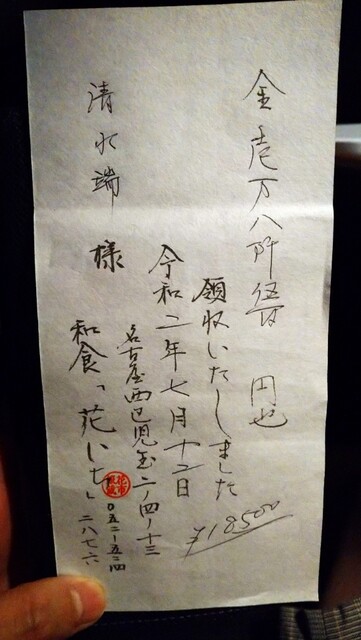 金 壱万八阡伍百 円也
領収いたしました
¥18500
令和二年七月十二日
名古屋西区児玉二ノ4ノ十三
清水端 様
和食「花いち」
〇五二ー五二四
二八七六